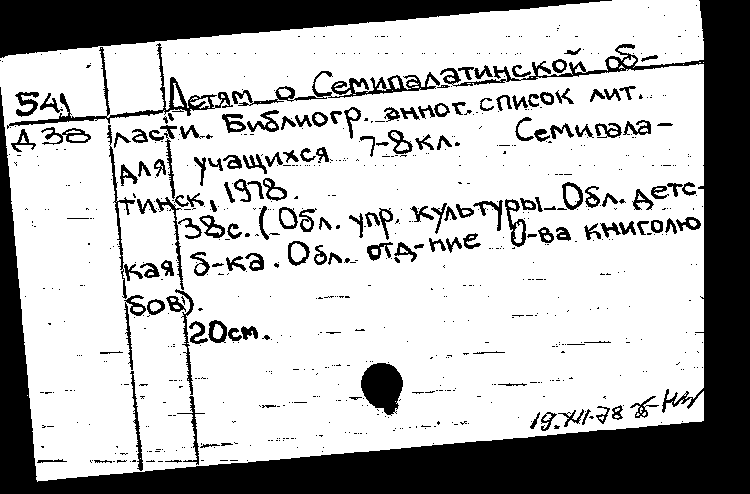 54) Детям о Семипалатинской об-
Д 38 ласти. Библиогр. аннот. список лит.
для учащихся 7-8 кл. Семипала-
тинск, 1978.
38с. (Обл. упр. культуры. Обл. детс-
кая б-ка. Обл. отд-ние О-ва книголю
бов).
20см.
19.XII-78